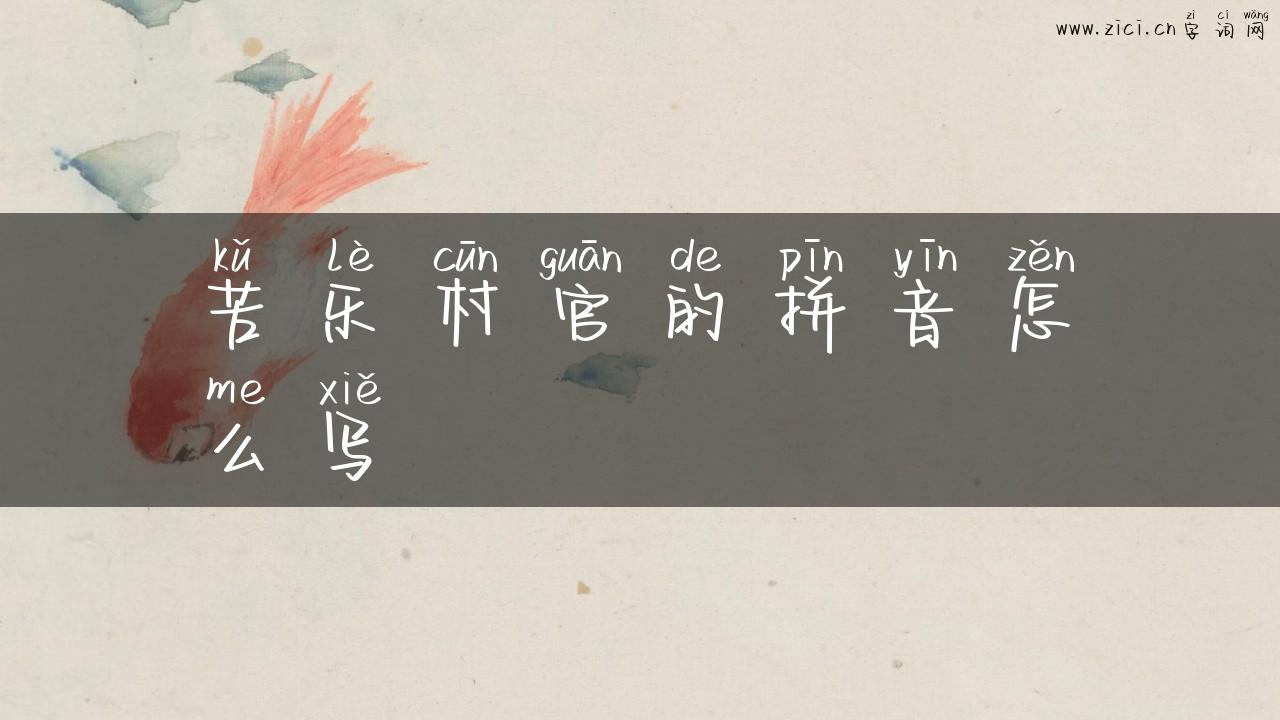 zì cí wǎng
www.zici.cn 字词网
kǔ lè cūn guān de pīn yīn zěn
苦乐村官的拼音怎
me xiě
么写